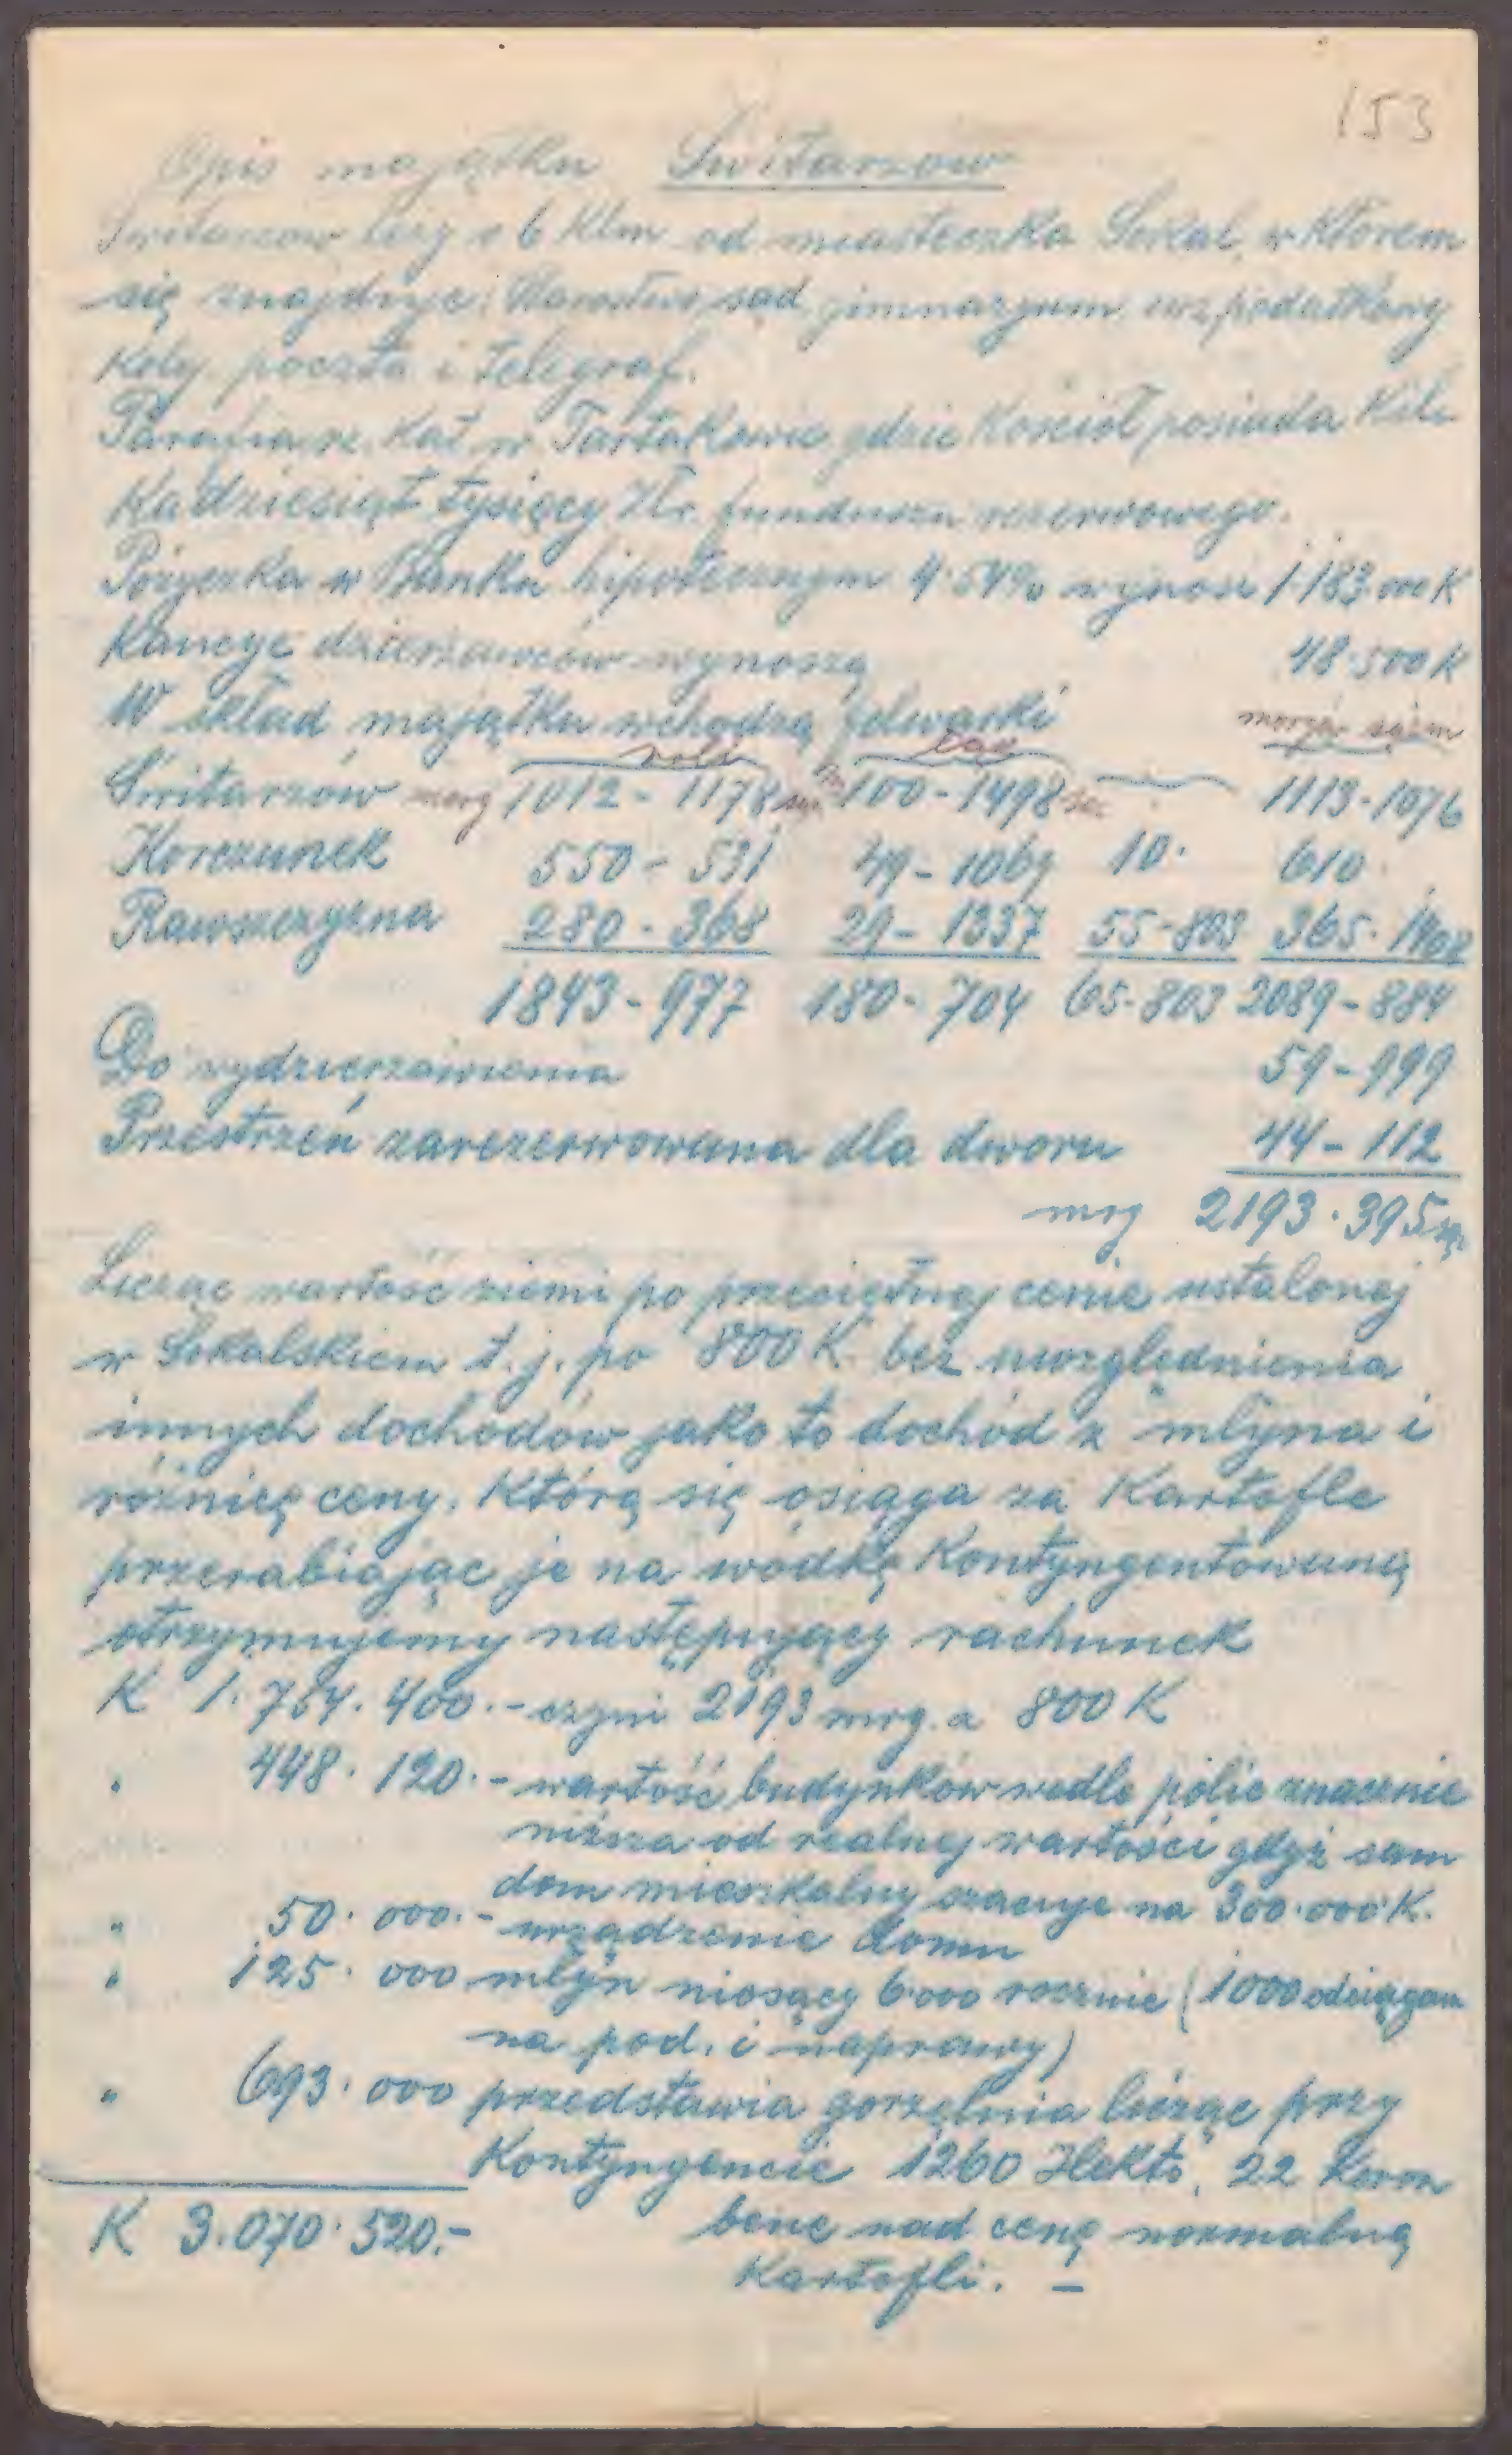 153
Opis majątku Switarzow
Switarzow leży o 6 Klm od miasteczka Sokal, w Którem
się znajduje: Starostwo, sąd, gimnazjum, urz podatkowy
Kolej, poczta i telegraf.
Parafia rz. Kat w Tartakowie, gdzie Kościoł posiada Kil-
Kadziesiąt tysięcy Złr. funduszu rezerwowego.
Pożyczka w Banku hipotecznym 4·54% wynosi 1·183.000 K
Kaucye dzierżawców wynoszą 48·500 K
W skład majątku wchodzą folwarki
roli łąg morgi sążni
Switarzów morg 1012 - 1178 sąż 100 - 1498 1113 - 1076
Korczunek 550 - 531 49 - 1069 10. 610
Rawszczyzna 280 - 368 29 - 1337 55-803 365. 1408
1843 - 977 180 - 704 65-803 2089 - 884
Do wydzierżawienia 59 - 999
Przestrzeń zarezerwowana dla dworu 44 - 112
mrg 2193 . 395 sąż
Licząc wartość ziemi po przeciętnej cenie ustalonej
w Sokalskiem t. j. po 800 K. bez uwzględnienia
innych dochodów jako to dochód z młyna i
różnicę ceny, Którą się osiąga za Kartofle
przerabiając je na wódkę Kontyngentowaną
otrzymujemy następujący rachunek
K 1.754.400.- czyni 2193 mrg. a 800 K
" 448.120.- wartość budynków wedle polic znacznie
niższa od realnej wartości gdyż sam
dom mieszkalny szacuje na 300.000 K.
" 50.000.- urządzenie domu
" 125.000 młyn niosący 6.000 rocznie (1000 odciągam
na pod. i naprawy)
" 693.000 przedstawia gorzelnia licząc przy
Kontyngencie 1260 Hekto, 22 Koron
K 3.070.520.- bene nad cenę normalną
Kartofli. -